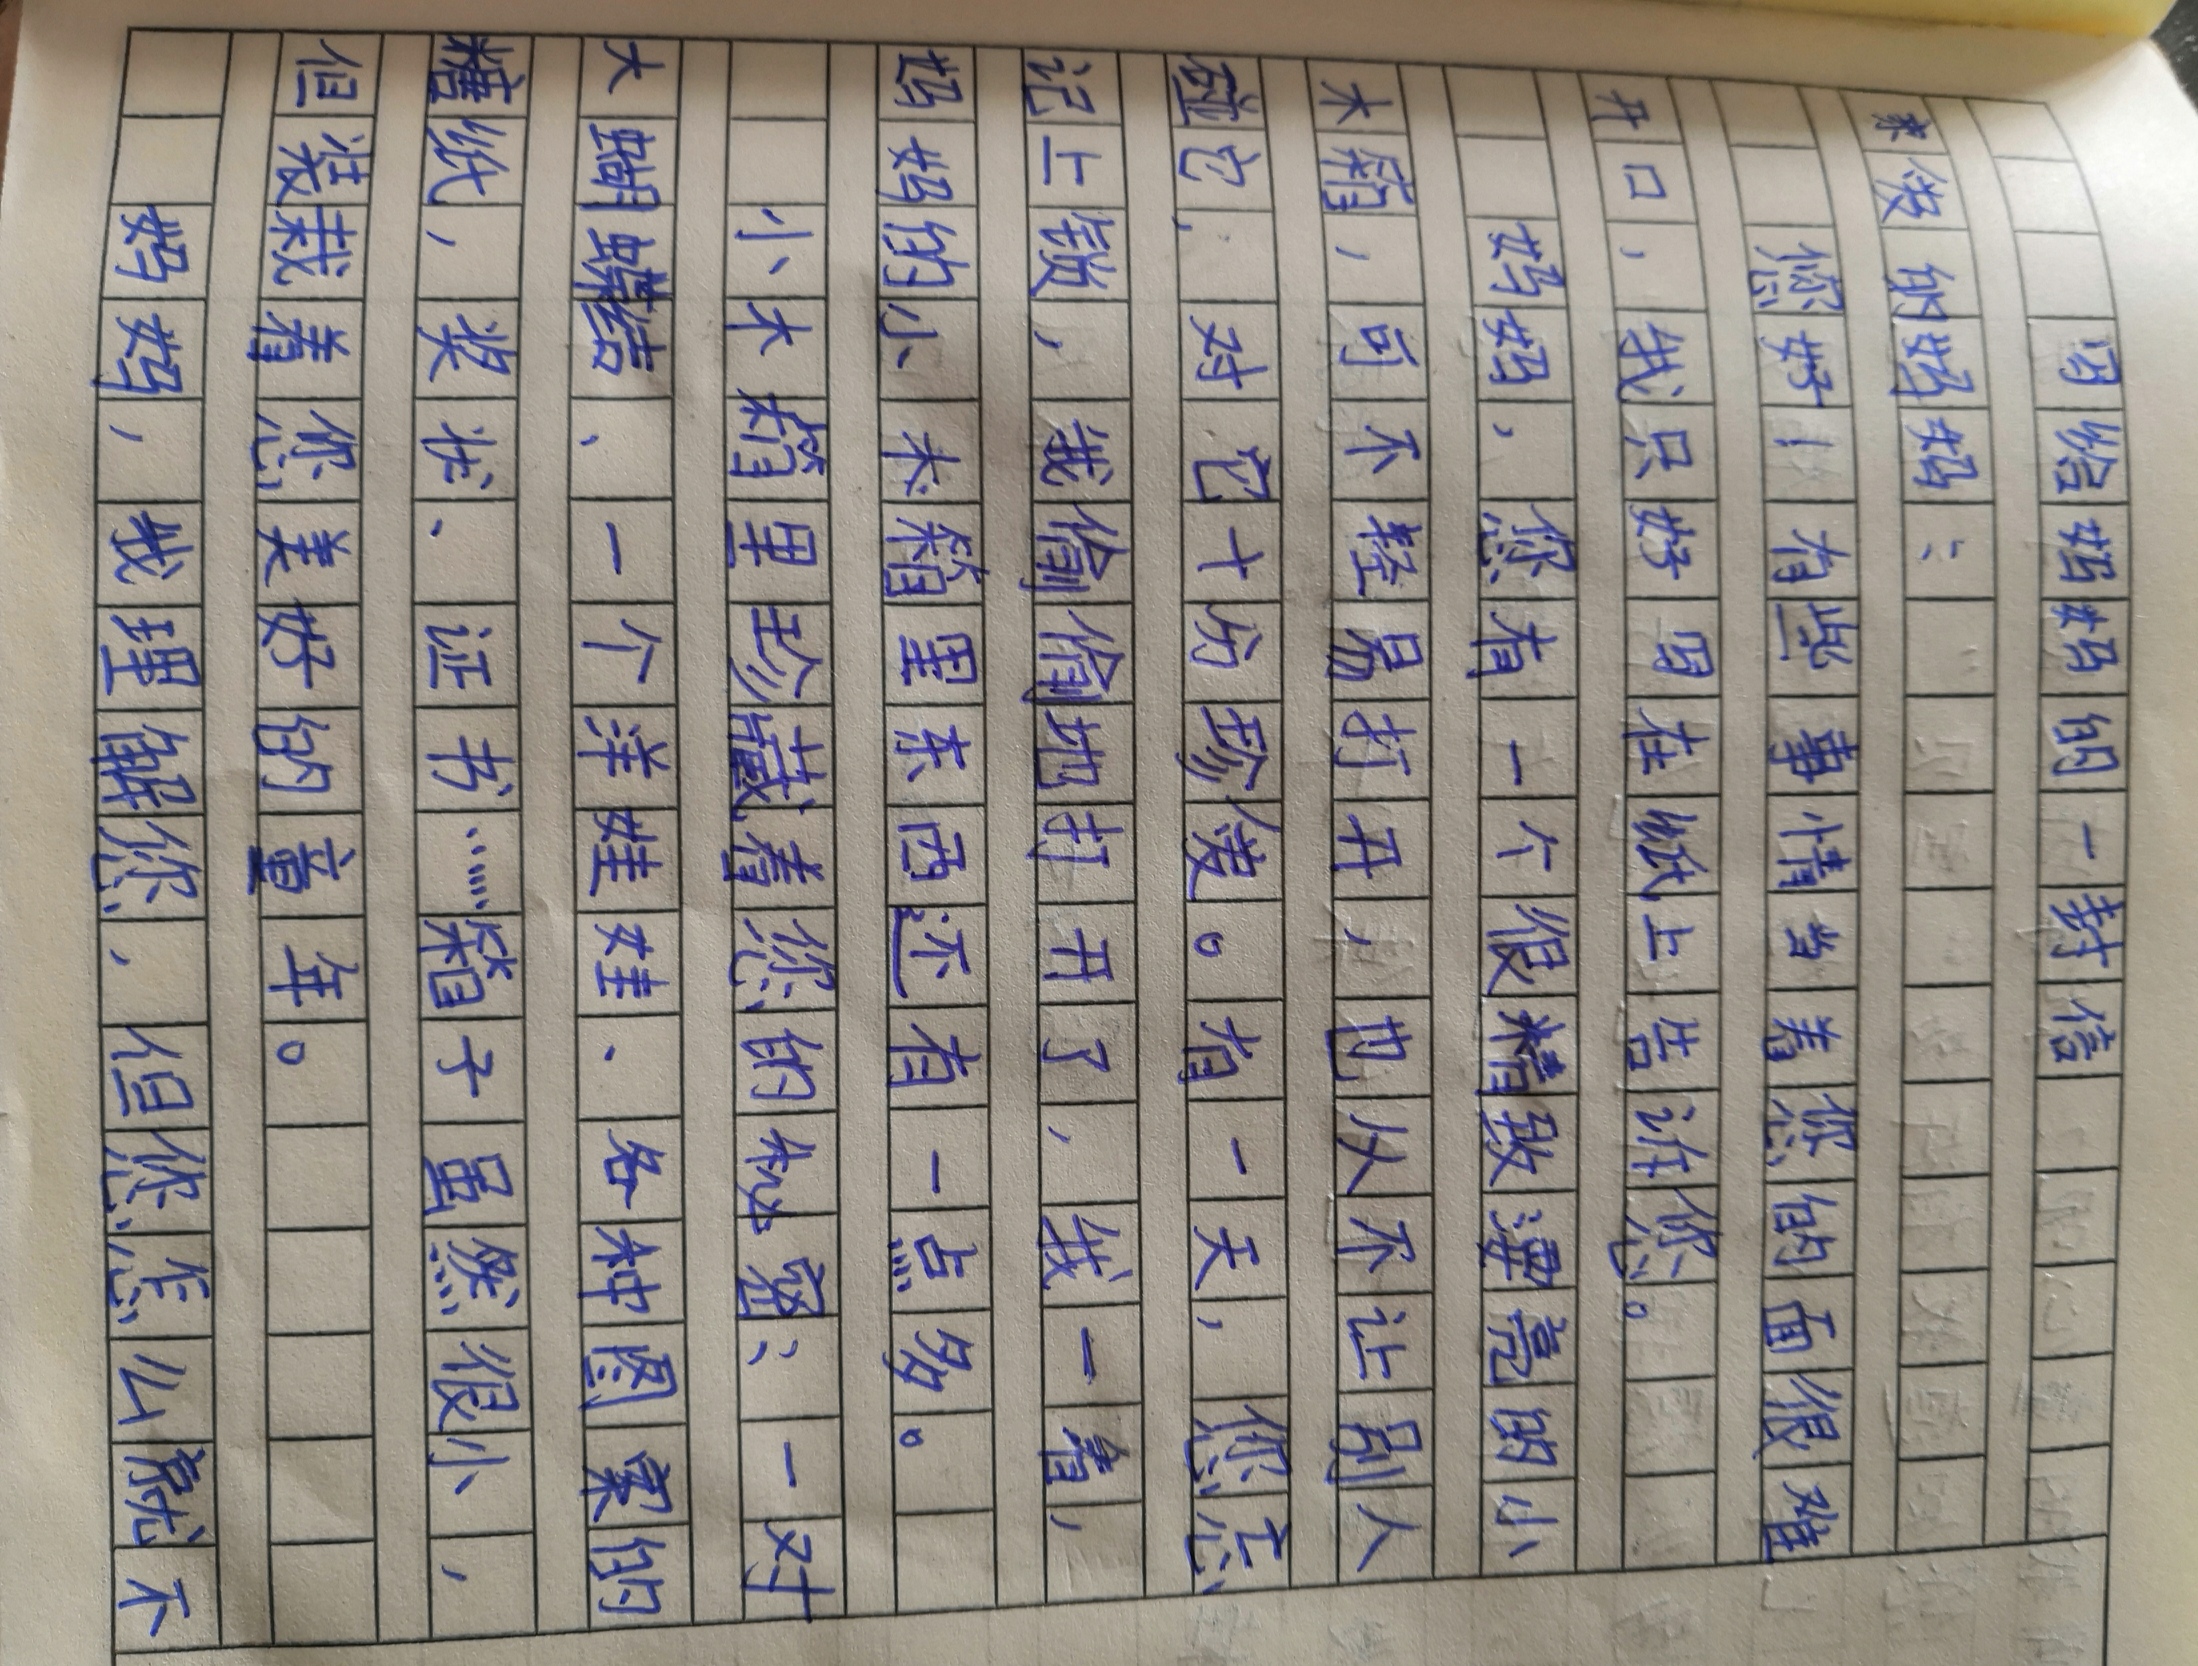 写给妈妈的一封信
亲爱的妈妈：
您好！有些事情当着您的面很难
开口，我只好写在纸上告诉您。
妈妈，您有一个很精致漂亮的小
木箱，可不轻易打开，也从不让别人
碰它，对它十分珍爱。有一天，您忘
记上锁，我偷偷地打开了，我一看，
妈妈的小木箱里东西还有一点多。
小木箱里珍藏着您的秘密：一对
大蝴蝶结、一个洋娃娃、各种图案的
糖纸，奖状、证书……箱子虽然很小，
但装载着您美好的童年。
妈妈，我理解您，但您怎么就不